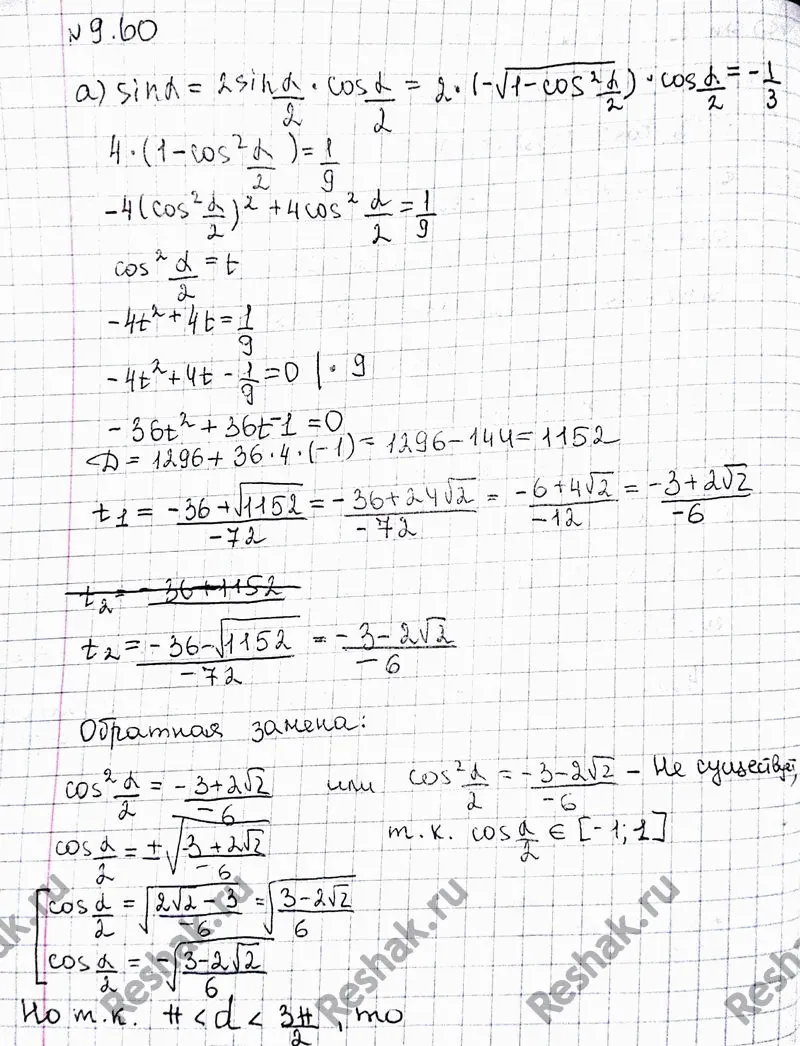 №9.60
а) sinα = 2sin α/2 · cos α/2 = 2·(-√(1-cos² α/2)) · cos α/2 = -1/3
4·(1-cos² α/2) = 1/9
-4(cos² α/2)² + 4cos² α/2 = 1/9
cos² α/2 = t
-4t² + 4t = 1/9
-4t² + 4t - 1/9 = 0 | · 9
-36t² + 36t - 1 = 0
D = 1296 + 36·4·(-1) = 1296 - 144 = 1152
t₁ = (-36+√1152)/(-72) = (-36+24√2)/(-72) = (-6+4√2)/(-12) = (-3+2√2)/(-6)
t₂ = (-36-√1152)/(-72) = (-3-2√2)/(-6)
Обратная замена:
cos² α/2 = (-3+2√2)/(-6) или cos² α/2 = (-3-2√2)/(-6) - Не существует,
т.к. cos α/2 ∈ [-1;1]
cos α/2 = ±√((-3+2√2)/(-6))
[ cos α/2 = √((2√2-3)/(-6)) = √((3-2√2)/6)
cos α/2 = -√((3-2√2)/6)
Но т.к. π < α < 3π/2, то
Reshak.ru
Reshak.ru
Reshak.ru
Reshak.ru